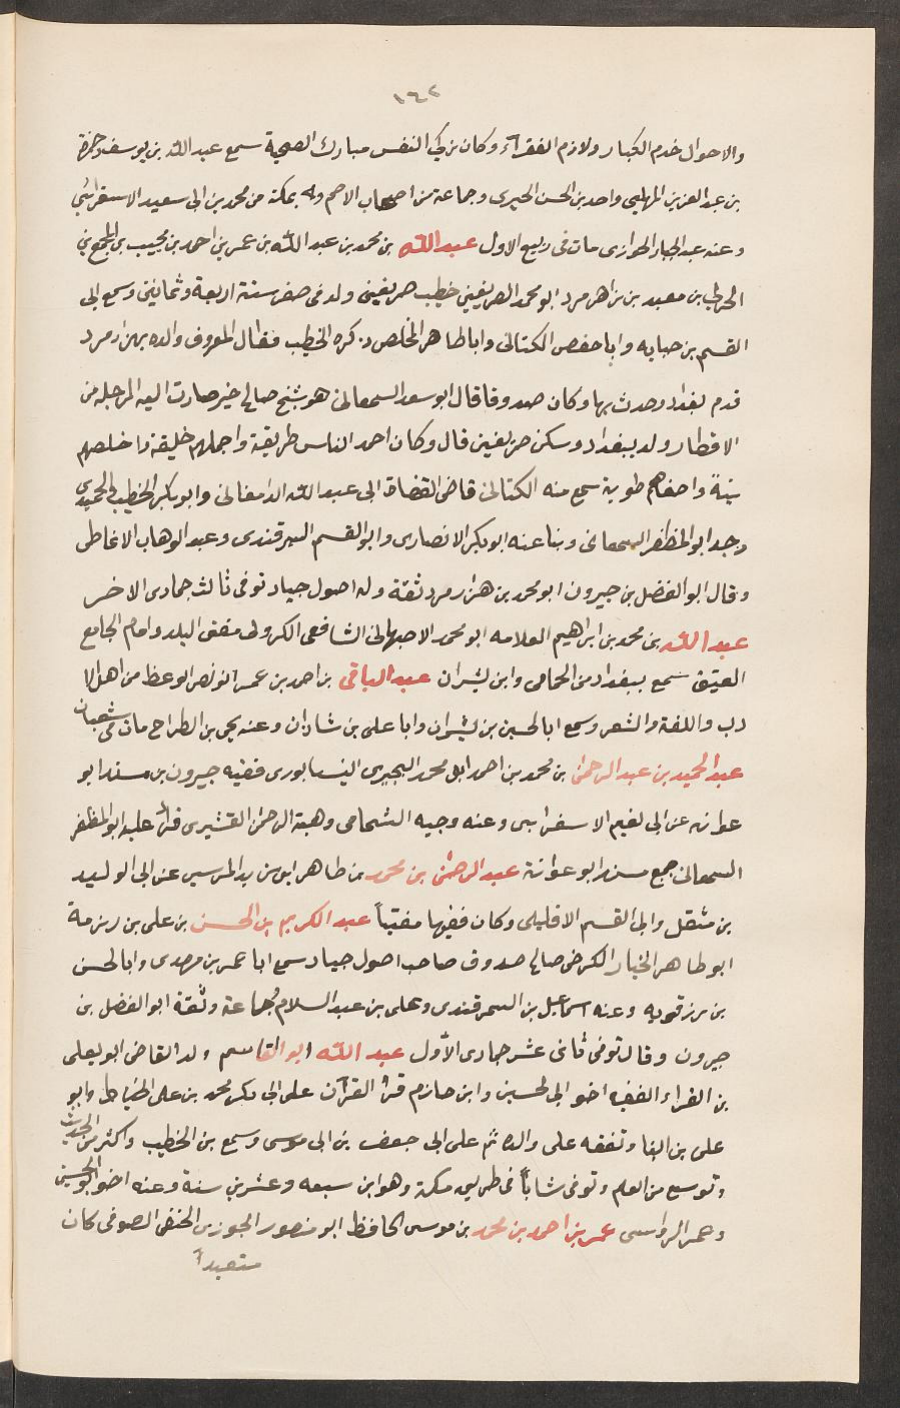 ١٦٢
والاحوال خدم الكبار ولازم الفقراء وكان زكي النفس مبارك الصحبة سمع عبد الله بن يوسف وحمزة
بن عبد العزيز المهلبي واحمد بن الحسن الحيرى وجماعة من اصحاب الاصم وله بمكة من محمد بن ابى سعيد الاسفرائني
وعنه عبد الجبار الخوارزى مات فى ربيع الاول عبد الله بن محمد بن عبد الله بن عمر بن احمد بن مجيب بن المجمع بن
بن معبد بن هزاهرمرد ابو محمد الصريفينى خطيب صريفينى ولد فى صفر سنة اربعة وثمانين وسمع ابى
القسم بن حبابه وابا حفص الكتانى وابا طاهر المخلص ذكره الخطيب فقال المعروف والده بهزارمرد
قدم بغداد وحدث بها وكان صدوقا قال ابو سعد السمعانى هو شيخ صالح خير صارت اليه الرحلة من
الاقطار ولد ببغداد وسكن صريفين قال وكان احمد الناس طريقة واجملهم خليقة واخلصهم
نيةً واصفاهم طوية سمع منه الكتانى قاضى القضاة ابى عبد الله الدامغانى وابو بكر الخطيب الحميدى
وجد ابو المظفر السمعانى وبنا عنه ابو بكر الانصارى وابو القسم السمرقندى وعبد الوهاب الانماطى
وقال ابو الفضل بن جيرون ابو محمد بن هزارمرد ثقة وله اصول جياد توفى ثالث جمادى الاخر
عبد الله بن محمد بن ابراهيم العلامه ابو محمد الاصبهانى الشافعى الكرونى مفتى البلد وامام الجامع
العتيق سمع ببغداد من الحمامى وابن بشران عبد الباقى بن احمد بن عمر ابو نصر الوعظ من اهل الا
دب واللغة والشعر وسمع ابا الحسين بن بشران وابا على بن شاذان وعنه يحى بن الطراح مات فى شعبان
عبد الحميد بن عبد الرحمن بن محمد بن احمد ابو محمد البحيرى النيسابورى فقيه جيرون بن مسند ابو
عوانه عن ابى نعيم الاسفرايينى وعنه وجيه الشحامى وهبة الرحمن القشيرى قرأ عليه ابو المظفر
السمعانى جميع مسند ابو عوانة عبد الرحمن بن محمد بن طاهر ابو زيد المرسي عن ابى الوليد
بن منتقل وابى القسم الاقليلى وكان فقيها مفتياً عبد الكريم بن الحسن بن على بن رزمة
ابو طاهر الخباز الكرخى صالح صدوق صاحب اصول جياد سمع ابا عمر بن مهدى وابا الحسن
بن رزقويه وعنه اسماعيل بن السمرقندى وعلى بن عبد السلام وجماعة وثقة ابو الفضل بن
جيرون وقال توفى ثانى عشر جمادى الاول عبد الله ابو القاسم ولد القاضى ابو يعلى
بن الفراء الفقيه اخو ابى الحسين وابن حازم قرأ القرآن على ابى بكر محمد بن على الخياط وابو
على بن البنا وتفقه على والده ثم على ابى جعف بن ابى موسى وسمع بن الخطيب واكثر من الحديث
وتوسع من العلم وتوفى شاباً فى طريق مكة وهو ابن سبعه وعشرين سنة وعنه اخو ابو الحسين
وعمر الرواسى عمر بن احمد بن محمد بن موسى الحافظ ابو منصور الجوزى الحنفى الصوفى كان
متعبداً